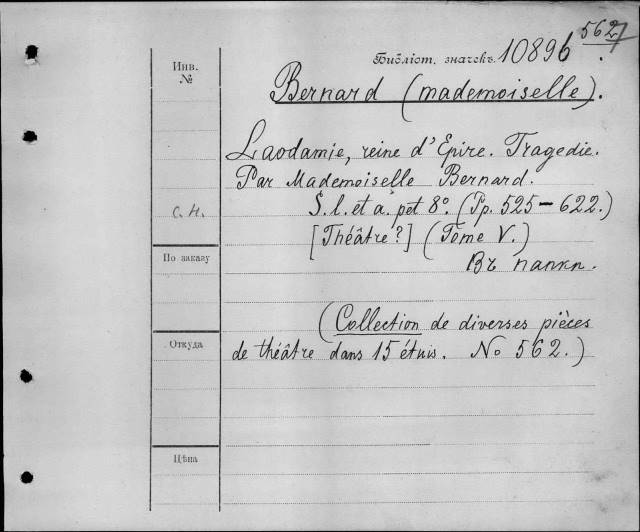 562
Библіот. значекъ 10896.
Инв.
№
Bernard (mademoiselle).
Laodamie, reine d'Epire. Tragedie.
Par Mademoiselle Bernard.
С. Н.
S. l. et a. pet 8°. (Pp. 525-622.)
[Théâtre?] (Tome V.)
По заказу
Въ папкѣ.
(Collection de diverses pièces
Откуда
de théâtre dans 15 étuis. No 562.)
Цѣна